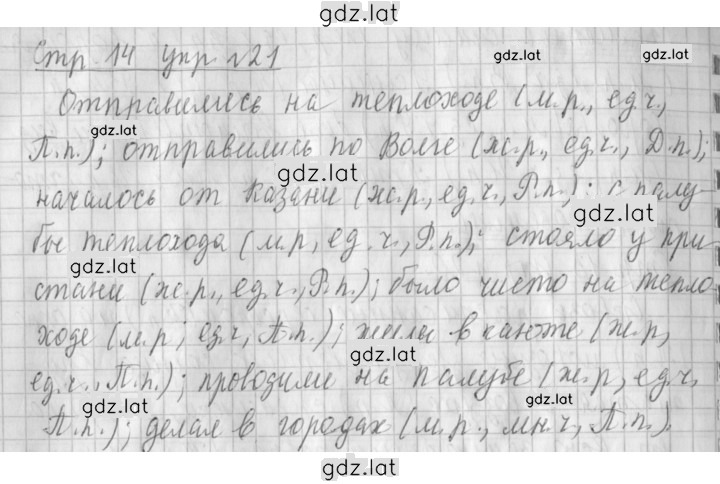 gdz.lat
Стр. 14 упр №21
gdz.lat
gdz.lat
Отправились на теплоходе (м.р., ед.ч.,
gdz.lat
П.п.); отправились по Волге (ж.р., ед.ч., Д.п.);
gdz.lat
началось от Казани (ж.р., ед.ч., Р.п.); с палу-
gdz.lat
бы теплохода (м.р., ед.ч., Р.п.); стояло у при
gdz.lat
стани (ж.р., ед.ч., Р.п.); было чисто на тепло
ходе (м.р; ед.ч, П.п.); жили в каюте (ж.р,
gdz.lat
ед.ч., П.п.); проводили на палубе (ж.р, ед.ч,
gdz.lat
gdz.lat
П.п.); делал в городах (м.р., мн.ч, П.п.).
gdz.lat